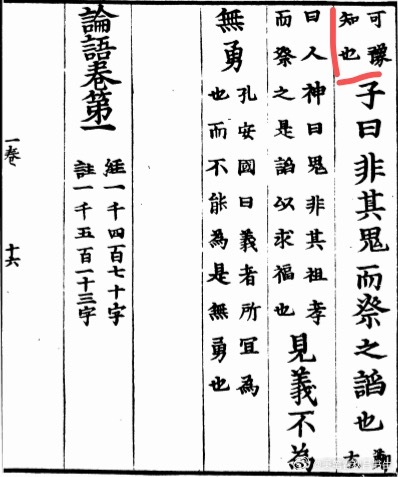 可豫
知也
子曰非其鬼而祭之諂也
鄭
玄
曰人神曰鬼非其祖孝
而祭之是諂以求福也
見義不為
無勇
孔安國曰義者所宜為
也而不能為是無勇也
論語卷第一
經一千四百七十字
註一千五百一十三字
一卷
十六